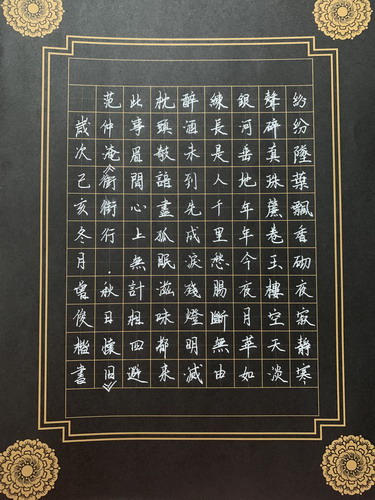 紛紛墜葉飄香砌夜寂靜寒
聲碎真珠簾卷玉樓空天淡
銀河垂地年年今夜月華如
練長是人千里愁腸斷無由
醉酒未到先成淚殘燈明滅
枕頭敧諳盡孤眠滋味都來
此事眉間心上無計相迴避
范仲淹《御街行·秋日懷旧》
歲次己亥冬月曾俊槛書